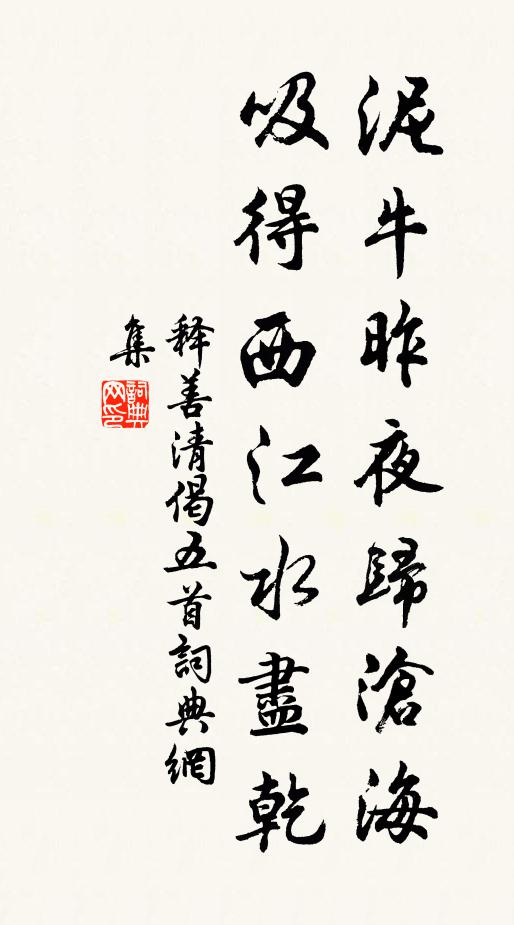 泥牛昨夜歸滄海
吸得西江水盡乾
释善清偈五首詞典網
集
詞典网印